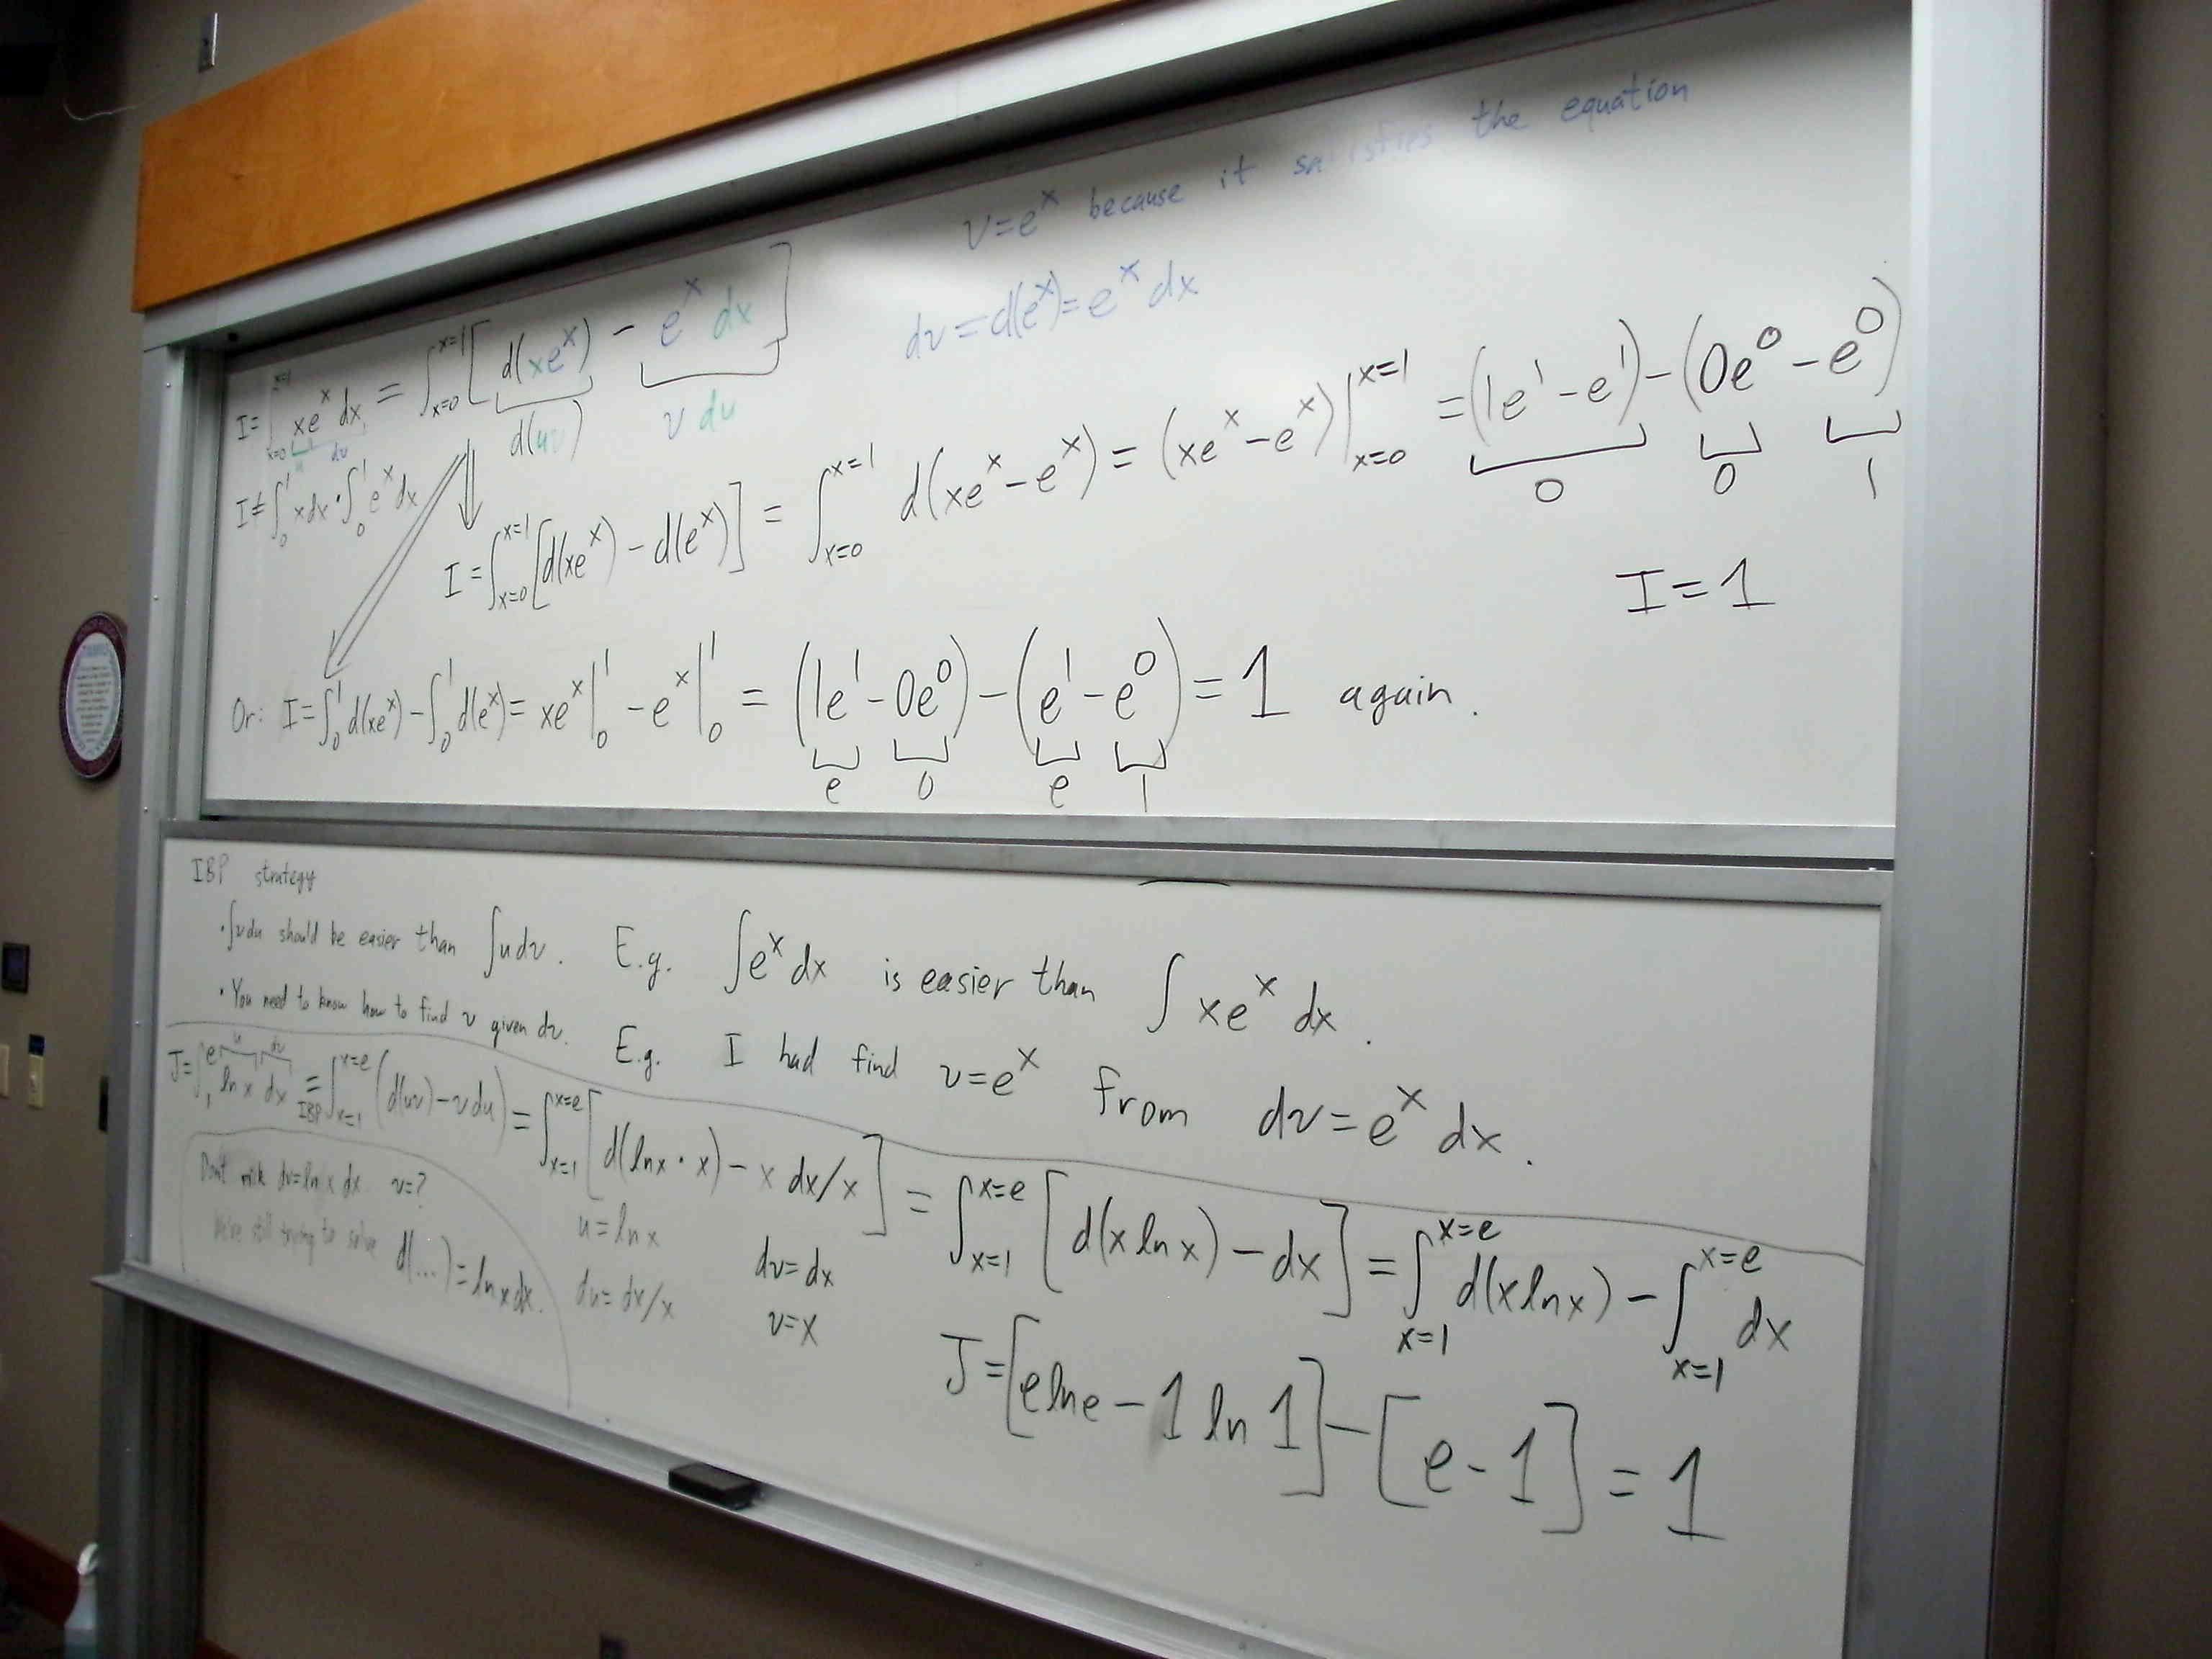 v=eˣ because it satisfies the equation
dv=d(eˣ)=eˣ dx
I=∫_{x=0}^{x=1} xeˣ dx = ∫_{x=0}^{x=1} [d(xeˣ) - eˣ dx]
u dv d(uv) v du
I≠∫₀¹ x dx · ∫₀¹ eˣ dx
I=∫_{x=0}^{x=1} [d(xeˣ) - d(eˣ)] = ∫_{x=0}^{x=1} d(xeˣ - eˣ) = (xeˣ - eˣ)|_{x=0}^{x=1} = (1e¹ - e¹) - (0e⁰ - e⁰)
0 0 1
I=1
Or: I=∫₀¹ d(xeˣ) - ∫₀¹ d(eˣ) = xeˣ|₀¹ - eˣ|₀¹ = (1e¹ - 0e⁰) - (e¹ - e⁰) = 1 again.
e 0 e 1
IBP strategy
·∫vdu should be easier than ∫udv. E.g. ∫eˣ dx is easier than ∫xeˣ dx.
·You need to know how to find v given dv. E.g. I had find v=eˣ from dv=eˣ dx.
u dv
J=∫₁ᵉ ln x dx =_{IBP} ∫_{x=1}^{x=e} (d(uv) - v du) = ∫_{x=1}^{x=e} [d(lnx · x) - x dx/x] = ∫_{x=1}^{x=e} [d(x ln x) - dx] = ∫_{x=1}^{x=e} d(x ln x) - ∫_{x=1}^{x=e} dx
Don't dv=ln x dx v=?
We're still trying to solve d(...)=ln x dx.
u=ln x dv=dx
du=dx/x v=x
J=[e ln e - 1 ln 1] - [e - 1] = 1